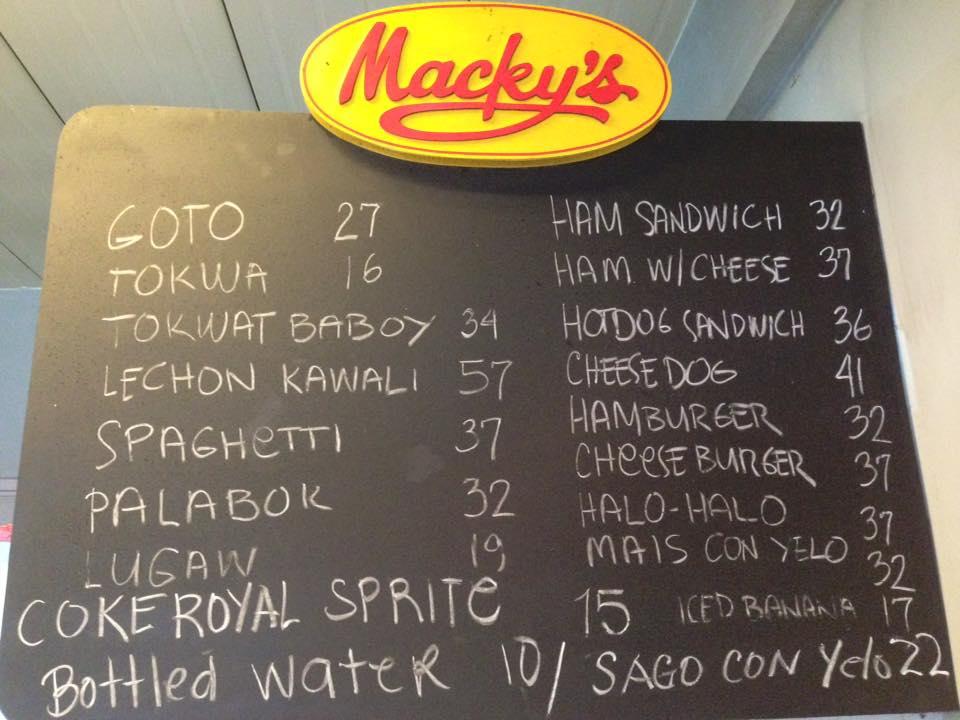 Macky's
GOTO 27
TOKWA 16
TOKWAT BABOY 34
LECHON KAWALI 57
SPAGHETTI 37
PALABOK 32
LUGAW 19
HAM SANDWICH 32
HAM W/CHEESE 37
HOTDOG SANDWICH 36
CHEESE DOG 41
HAMBURGER 32
CHEESE BURGER 37
HALO-HALO 37
MAIS CON YELO 32
COKE ROYAL SPRITE 15 ICED BANANA 17
Bottled Water 10/ SAGO CON Yelo 22